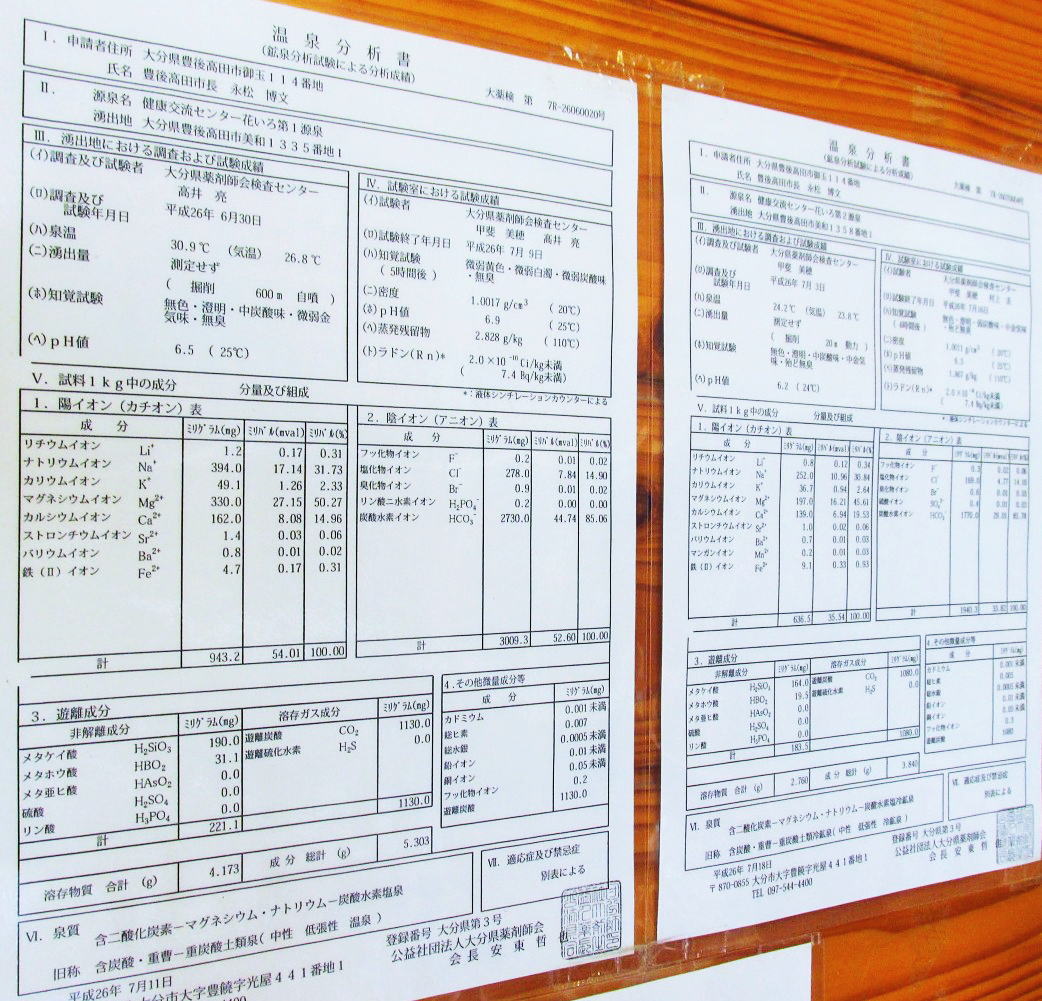 温泉分析書
(鉱泉分析試験による分析成績)
大薬検 第 7R-26060020号
Ⅰ. 申請者住所 大分県豊後高田市御玉114番地
氏名 豊後高田市長 永松 博文
Ⅱ. 源泉名 健康交流センター花いろ第1源泉
湧出地 大分県豊後高田市美和1335番地1
Ⅲ. 湧出地における調査および試験成績
(イ)調査及び試験者 大分県薬剤師会検査センター
高井 亮
(ロ)調査及び試験年月日 平成26年 6月30日
(ハ)泉温 30.9℃ (気温) 26.8℃
(ニ)湧出量 測定せず
( 掘削 600m 自噴 )
(ホ)知覚試験 無色・澄明・中炭酸味・微弱金気味・無臭
(ヘ)pH値 6.5 (25℃)
Ⅳ. 試験室における試験成績
(イ)試験者 大分県薬剤師会検査センター
甲斐 美穂 高井 亮
(ロ)試験終了年月日 平成26年 7月 9日
(ハ)知覚試験 微弱黄色・微弱白濁・微弱炭酸味
(5時間後) ・無臭
(ニ)密度 1.0017 g/cm³ (20℃)
(ホ)pH値 6.9 (25℃)
(ヘ)蒸発残留物 2.828 g/kg (110℃)
(ト)ラドン(Rn)* 2.0×10⁻¹⁰Ci/kg未満
( 7.4 Bq/kg未満)
*:液体シンチレーションカウンターによる
Ⅴ. 試料1kg中の成分 分量及び組成
1. 陽イオン(カチオン)表
成 分 ミリグラム(mg) ミリバル(mval) ミリバル(%)
リチウムイオン Li⁺ 1.2 0.17 0.31
ナトリウムイオン Na⁺ 394.0 17.14 31.73
カリウムイオン K⁺ 49.1 1.26 2.33
マグネシウムイオン Mg²⁺ 330.0 27.15 50.27
カルシウムイオン Ca²⁺ 162.0 8.08 14.96
ストロンチウムイオン Sr²⁺ 1.4 0.03 0.06
バリウムイオン Ba²⁺ 0.8 0.01 0.02
鉄(Ⅱ)イオン Fe²⁺ 4.7 0.17 0.31
計 943.2 54.01 100.00
2. 陰イオン(アニオン)表
成 分 ミリグラム(mg) ミリバル(mval) ミリバル(%)
フッ化物イオン F⁻ 0.2 0.01 0.02
塩化物イオン Cl⁻ 278.0 7.84 14.90
臭化物イオン Br⁻ 0.9 0.01 0.02
リン酸二水素イオン H₂PO₄⁻ 0.2 0.00 0.00
炭酸水素イオン HCO₃⁻ 2730.0 44.74 85.06
計 3009.3 52.60 100.00
3. 遊離成分
非解離成分 ミリグラム(mg)
メタケイ酸 H₂SiO₃ 190.0
メタホウ酸 HBO₂ 31.1
メタ亜ヒ酸 HAsO₂ 0.0
硫酸 H₂SO₄ 0.0
リン酸 H₃PO₄ 0.0
計 221.1
溶存ガス成分 ミリグラム(mg)
遊離炭酸 CO₂ 1130.0
遊離硫化水素 H₂S 0.0
1130.0
4.その他微量成分等
成 分 ミリグラム(mg)
カドミウム 0.001未満
総ヒ素 0.007
総水銀 0.0005未満
鉛イオン 0.01未満
銅イオン 0.05未満
フッ化物イオン 0.2
遊離炭酸 1130.0
溶存物質 合計 (g) 4.173 成分 総計 (g) 5.303
Ⅵ. 泉質 含二酸化炭素−マグネシウム・ナトリウム−炭酸水素塩泉
旧称 含炭酸・重曹−重炭酸土類泉( 中性 低張性 温泉 )
Ⅶ. 適応症及び禁忌症
別表による
平成26年 7月11日
登録番号 大分県第3号
公益社団法人大分県薬剤師会
会長 安東 哲也
大分市大字豊饒字光屋441番地1
温泉分析書
(鉱泉分析試験による分析成績)
大薬検 第
Ⅰ. 申請者住所 大分県豊後高田市御玉114番地
氏名 豊後高田市長 永松 博文
Ⅱ. 源泉名 健康交流センター花いろ第2源泉
湧出地 大分県豊後高田市美和1358番地1
Ⅲ. 湧出地における調査および試験成績
(イ)調査及び試験者 大分県薬剤師会検査センター
甲斐 美穂
(ロ)調査及び試験年月日 平成26年 7月 3日
(ハ)泉温 24.2℃ (気温) 23.8℃
(ニ)湧出量 測定せず
( 掘削 20m 動力 )
(ホ)知覚試験 無色・澄明・中炭酸味・中金気味・殆ど無臭
(ヘ)pH値 6.2 (24℃)
Ⅳ. 試験室における試験成績
(イ)試験者 大分県薬剤師会検査センター
甲斐 美穂
(ロ)試験終了年月日 平成26年 7月
(ハ)知覚試験
(ニ)密度 1.0011 g/cm³ (20℃)
(ホ)pH値
(ヘ)蒸発残留物
(ト)ラドン(Rn)* 2.0×10⁻¹⁰Ci/kg未満
( 7.4 Bq/kg未満)
*:液体シンチレーションカウンターによる
Ⅴ. 試料1kg中の成分 分量及び組成
1. 陽イオン(カチオン)表
成 分 ミリグラム(mg) ミリバル(mval) ミリバル(%)
リチウムイオン Li⁺ 0.8 0.12 0.34
ナトリウムイオン Na⁺ 252.0 10.96 30.84
カリウムイオン K⁺ 36.7 0.94 2.64
マグネシウムイオン Mg²⁺ 197.0 16.21 45.61
カルシウムイオン Ca²⁺ 139.0 6.94 19.53
ストロンチウムイオン Sr²⁺ 1.0 0.02 0.06
バリウムイオン Ba²⁺ 0.7 0.01 0.03
マンガンイオン Mn²⁺ 0.2 0.01 0.03
鉄(Ⅱ)イオン Fe²⁺ 9.1 0.33 0.93
計 636.5 35.54 100.00
2. 陰イオン(アニオン)表
成 分
フッ化物イオン F⁻
塩化物イオン Cl⁻
臭化物イオン Br⁻
硫酸イオン SO₄²⁻
炭酸水素イオン HCO₃⁻ 1770.0
計 1940.3 100.00
3. 遊離成分
非解離成分 ミリグラム(mg)
メタケイ酸 H₂SiO₃ 164.0
メタホウ酸 HBO₂ 19.5
メタ亜ヒ酸 HAsO₂ 0.0
硫酸 H₂SO₄ 0.0
リン酸 H₃PO₄ 0.0
計 183.5
溶存ガス成分 ミリグラム(mg)
遊離炭酸 CO₂ 1080.0
遊離硫化水素 H₂S 0.0
1080.0
4.その他微量成分等
成 分
カドミウム 0.001未満
総ヒ素
総水銀 0.0005未満
鉛イオン
銅イオン
フッ化物イオン
遊離炭酸
溶存物質 合計 (g) 2.760 成分 総計 (g) 3.840
Ⅵ. 泉質 含二酸化炭素−マグネシウム・ナトリウム−炭酸水素塩冷鉱泉
旧称 含炭酸・重曹−重炭酸土類冷鉱泉( 中性 低張性 冷鉱泉 )
Ⅶ. 適応症及び禁忌症
別表による
平成26年 7月18日
登録番号 大分県第3号
公益社団法人大分県薬剤師会
会長 安東 哲也
〒870-0855 大分市大字豊饒字光屋441番地1
TEL 097-544-4400